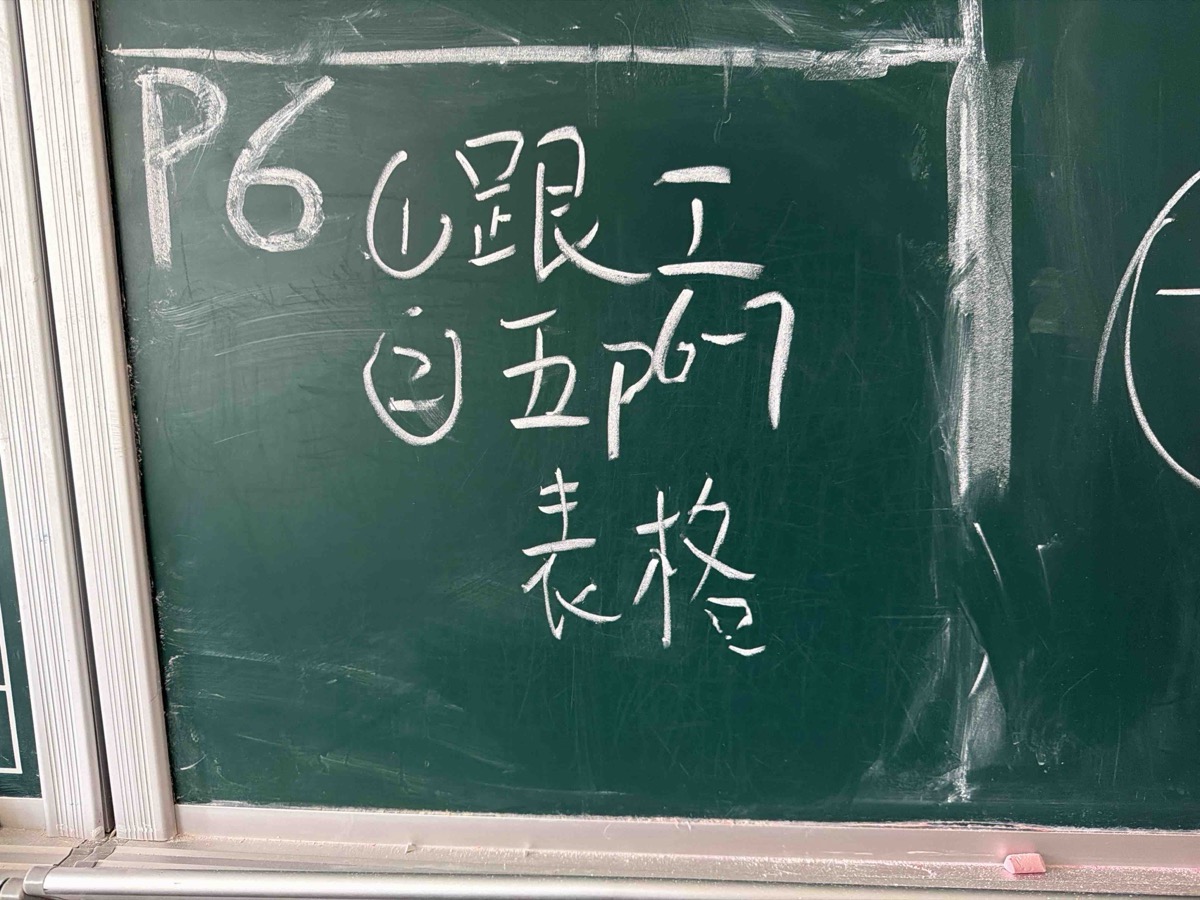 P6 ①跟工
②五P6-7
表格